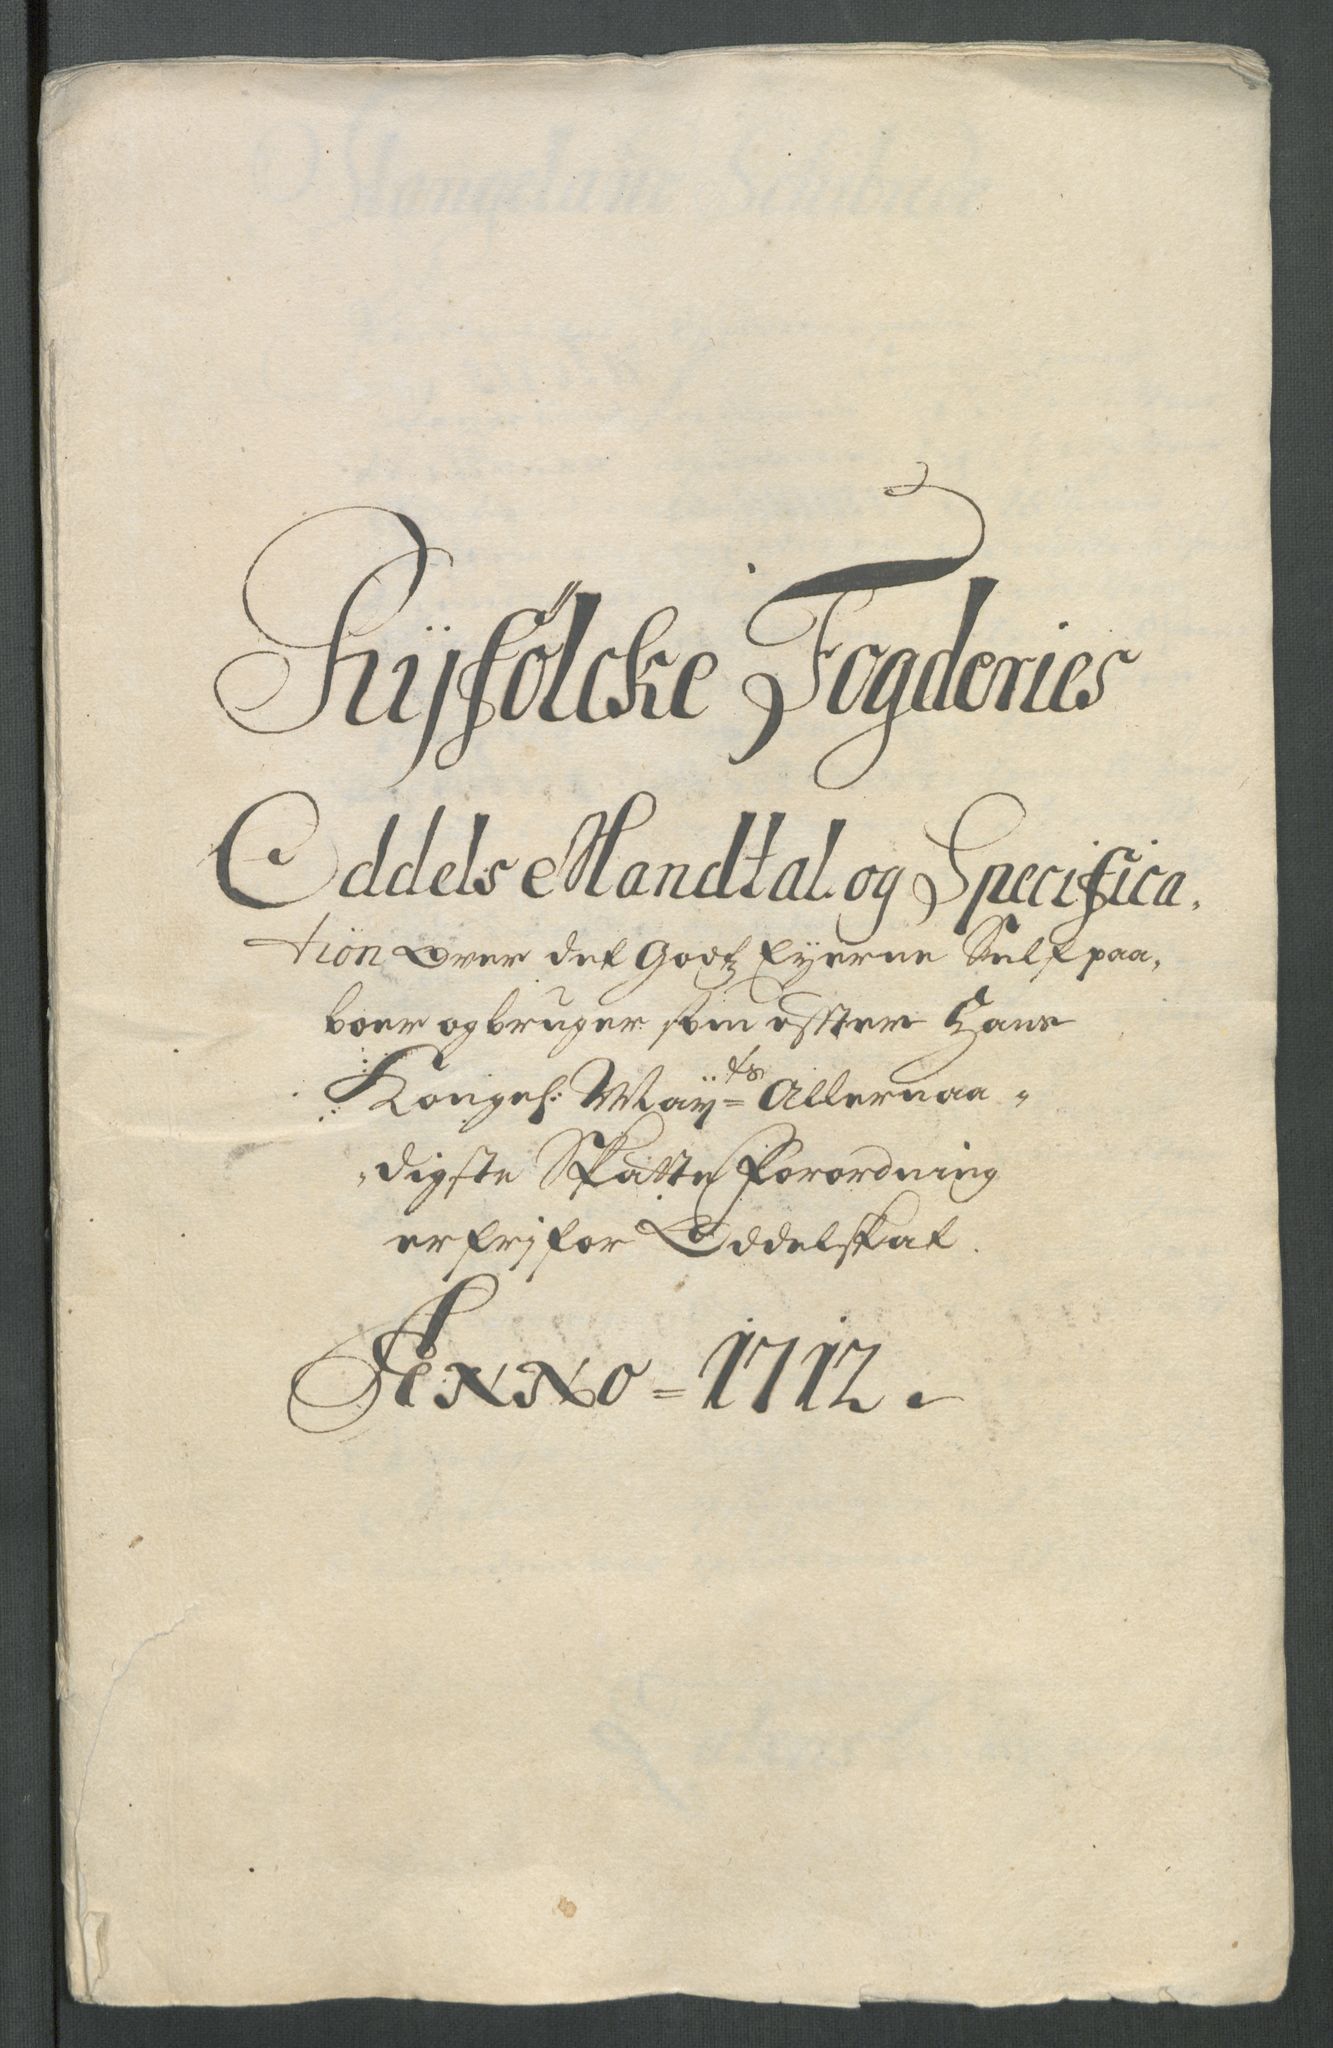 Ryfölcke Fogderies
Oddels Mandtal og Specifica,
tion Over det Godtz Eyerne Self paa,
boer og bruger som effter Hans
Kongel: Maÿ=ts Allernaa,
digste Skatte Forordning
er frj for Oddelskat.
Anno=1712.